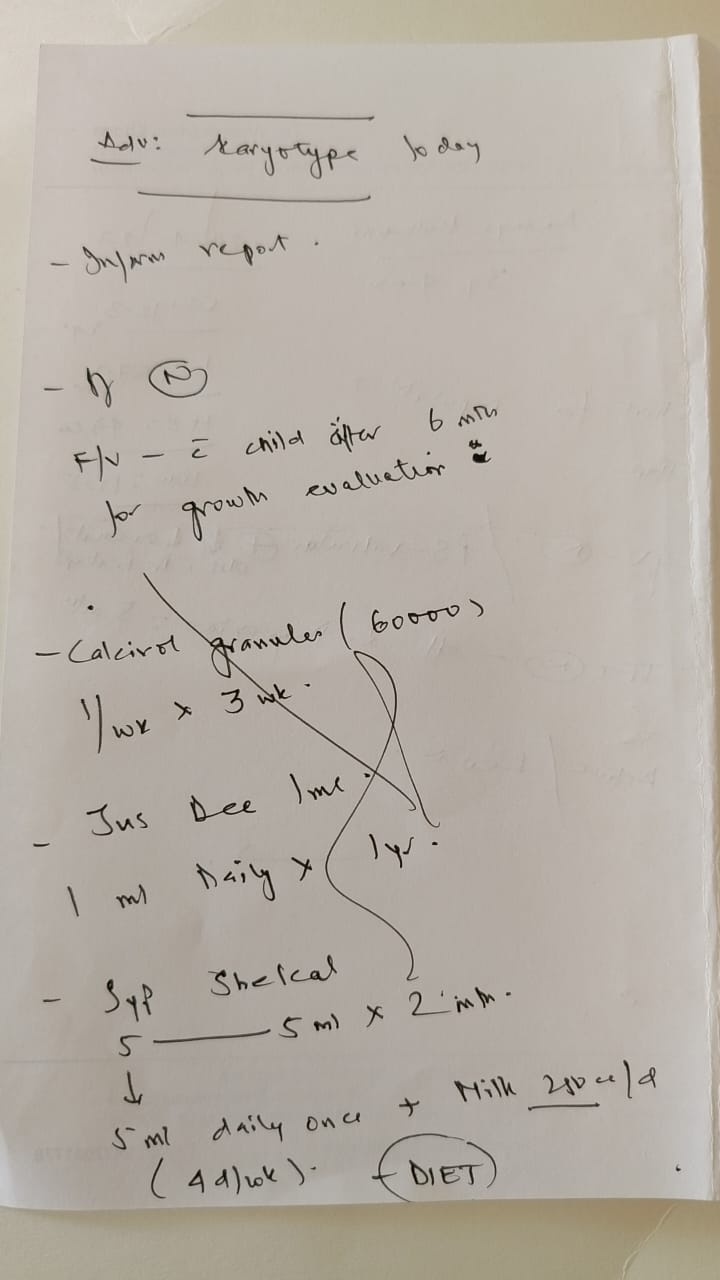 Adv: Karyotype today
- Inform report.
- If (N)
F/U - c̄ child after 6 mth
for growth evaluation
- Calcirol granules (60000)
1/wk x 3 wk.
- Jus Dee 1ml
1 ml Daily x 1yr.
- Syp Shelcal
5 — 5 ml x 2 mth.
↓
5 ml daily once + Milk 250 cc/d
(4d/wk). + DIET